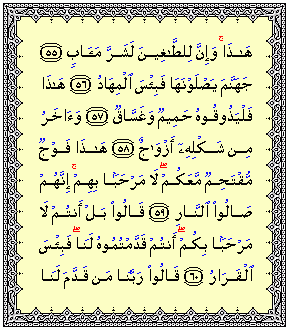 هَـٰذَا ۚ وَإِنَّ لِلطَّـٰغِينَ لَشَرَّ مَـَٔابٍ ﴿٥٥﴾
جَهَنَّمَ يَصْلَوْنَهَا فَبِئْسَ ٱلْمِهَادُ ﴿٥٦﴾ هَـٰذَا
فَلْيَذُوقُوهُ حَمِيمٌ وَغَسَّاقٌ ﴿٥٧﴾ وَءَاخَرُ
مِن شَكْلِهِۦٓ أَزْوَٰجٌ ﴿٥٨﴾ هَـٰذَا فَوْجٌ
مُّقْتَحِمٌ مَّعَكُمْ ۖ لَا مَرْحَبًۢا بِهِمْ ۚ إِنَّهُمْ
صَالُوا۟ ٱلنَّارِ ﴿٥٩﴾ قَالُوا۟ بَلْ أَنتُمْ لَا
مَرْحَبًۢا بِكُمْ ۖ أَنتُمْ قَدَّمْتُمُوهُ لَنَا ۖ فَبِئْسَ
ٱلْقَرَارُ ﴿٦٠﴾ قَالُوا۟ رَبَّنَا مَن قَدَّمَ لَنَا